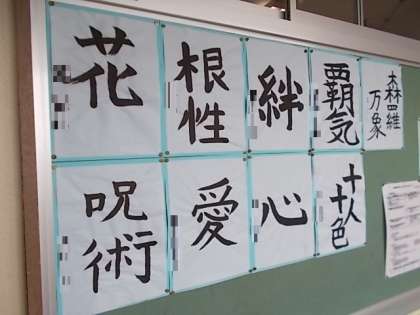 花
根性
絆
覇気
森羅
万象
呪術
愛
心
十人
十色